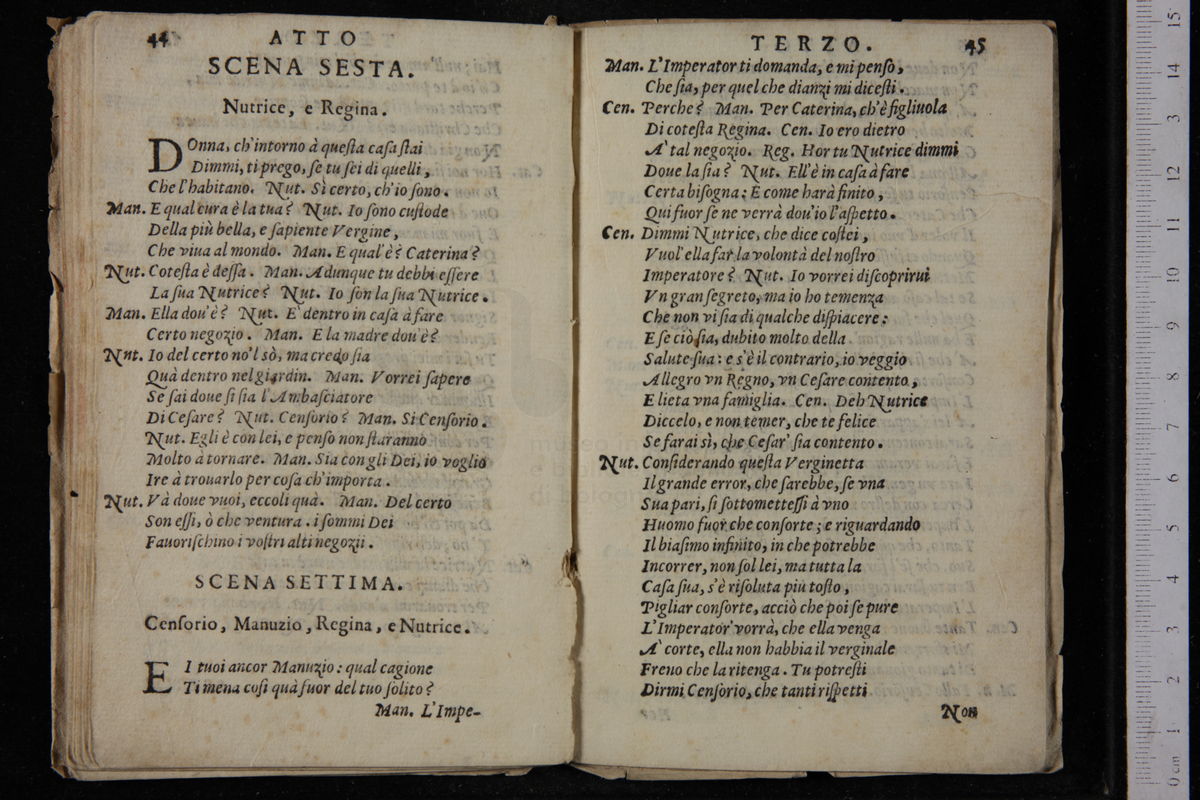 44
ATTO
SCENA SESTA.
Nutrice, e Regina.
DOnna, ch'intorno à questa casa stai
Dimmi, ti prego, se tu sei di quelli,
Che l'habitano. Nut. Sì certo, ch'io sono.
Man. E qual cura è la tua? Nut. Io sono custode
Della più bella, e sapiente Vergine,
Che viua al mondo. Man. E qual'è? Caterina?
Nut. Cotesta è dessa. Man. Adunque tu debbi essere
La sua Nutrice? Nut. Io son la sua Nutrice.
Man. Ella dou'è? Nut. E' dentro in casa à fare
Certo negozio. Man. E la madre dou'è?
Nnt. Io del certo no'l sò, ma credo sia
Quà dentro nel giardin. Man. Vorrei sapere
Se sai doue si sia l'Ambasciatore
Di Cesare? Nut. Censorio? Man. Si Censorio.
Nut. Egli è con lei, e penso non staranno
Molto à tornare. Man. Sia con gli Dei, io voglio
Ire à trouarlo per cosa ch'importa.
Nut. Và doue vuoi, eccoli quà. Man. Del certo
Son essi, ò che ventura. i sommi Dei
Fauorischino i vostri alti negozii.
SCENA SETTIMA.
Censorio, Manuzio, Regina, e Nutrice.
E I tuoi ancor Manuzio: qual cagione
Ti mena cosi quà fuor del tuo solito?
Man. L'Impe-
TERZO.
45
Man. L'Imperator ti domanda, e mi penso,
Che sia, per quel che dianzi mi dicesti.
Cen. Perche? Man. Per Caterina, ch'è figliuola
Di cotesta Regina. Cen. Io ero dietro
A' tal negozio. Reg. Hor tu Nutrice dimmi
Doue la sia? Nut. Ell'è in casa à fare
Certa bisogna: E come harà finito,
Qui fuor se ne verrà dou'io l'aspetto.
Cen. Dimmi Nutrice, che dice costei,
Vuol' ella far la volontà del nostro
Imperatore? Nut. Io vorrei discoprirui
Vn gran segreto, ma io ho temenza
Che non vi sia di qualche dispiacere:
E se ciò sia, dubito molto della
Salute sua: e s'è il contrario, io veggio
Allegro vn Regno, vn Cesare contento,
E lieta vna famiglia. Cen. Deh Nutrice
Diccelo, e non temer, che te felice
Se farai sì, che Cesar' sia contento.
Nut. Considerando questa Verginetta
Il grande error, che sarebbe, se vna
Sua pari, si sottomettessi à vno
Huomo fuor che consorte; e riguardando
Il biasimo infinito, in che potrebbe
Incorrer, non sol lei, ma tutta la
Casa sua, s'è risoluta più tosto,
Pigliar consorte, acciò che poi se pure
L'Imperator vorrà, che ella venga
A' corte, ella non habbia il verginale
Freno che la ritenga. Tu potresti
Dirmi Censorio, che tanti rispetti
Non